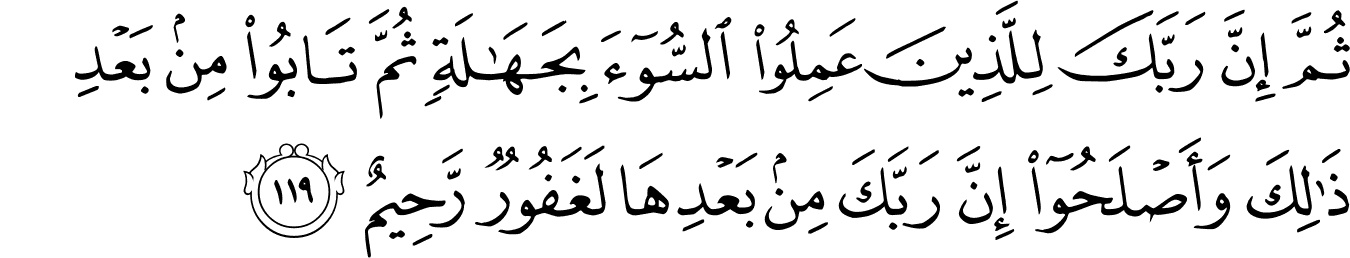 ثُمَّ إِنَّ رَبَّكَ لِلَّذِينَ عَمِلُوا۟ ٱلسُّوٓءَ بِجَهَـٰلَةٍ ثُمَّ تَابُوا۟ مِنۢ بَعْدِ
ذَٰلِكَ وَأَصْلَحُوٓا۟ إِنَّ رَبَّكَ مِنۢ بَعْدِهَا لَغَفُورٌ رَّحِيمٌ ١١٩